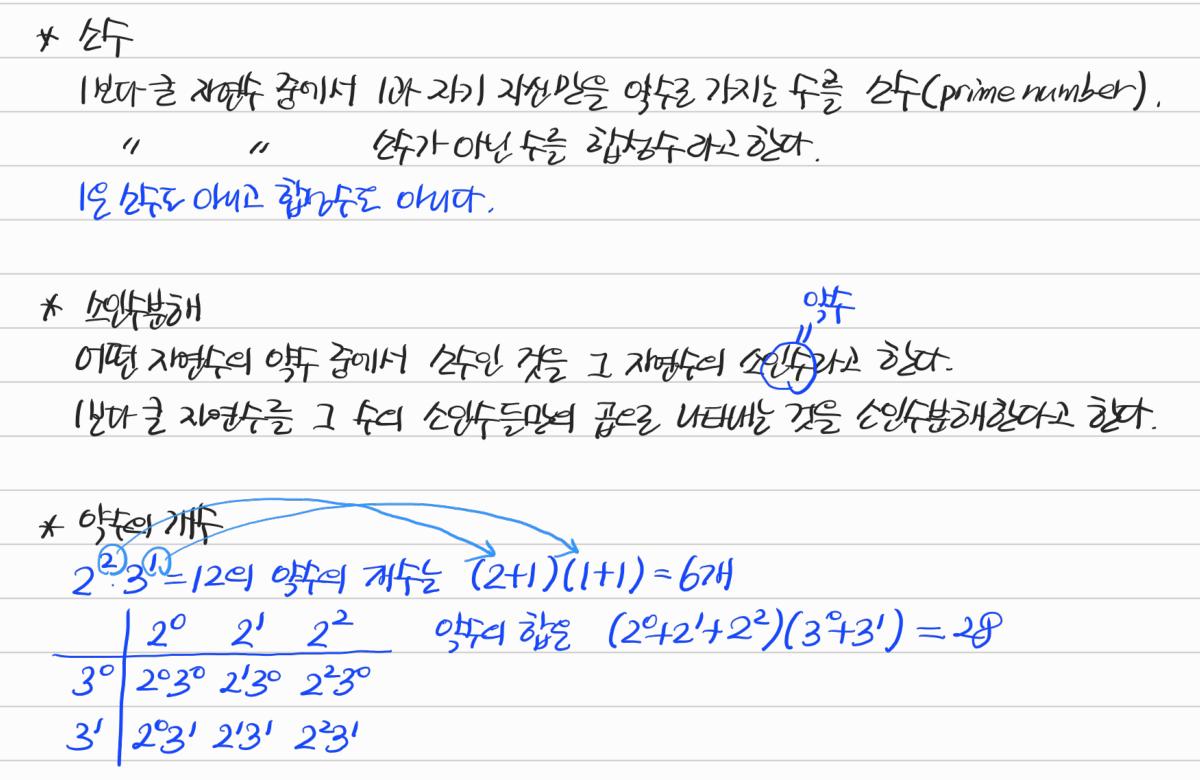 * 소수
1보다 큰 자연수 중에서 1과 자기 자신만을 약수로 가지는 수를 소수(prime number).
〃 〃 소수가 아닌 수를 합성수라고 한다.
1은 소수도 아니고 합성수도 아니다.
* 소인수분해
약수
=
어떤 자연수의 약수 중에서 소수인 것을 그 자연수의 소인수라고 한다.
1보다 큰 자연수를 그 수의 소인수들만의 곱으로 나타내는 것을 소인수분해한다고 한다.
* 약수의 개수
2²·3¹=12의 약수의 개수는 (2+1)(1+1)=6개
2⁰ 2¹ 2² 약수의 합은 (2⁰+2¹+2²)(3⁰+3¹)=28
3⁰ 2⁰3⁰ 2¹3⁰ 2²3⁰
3¹ 2⁰3¹ 2¹3¹ 2²3¹